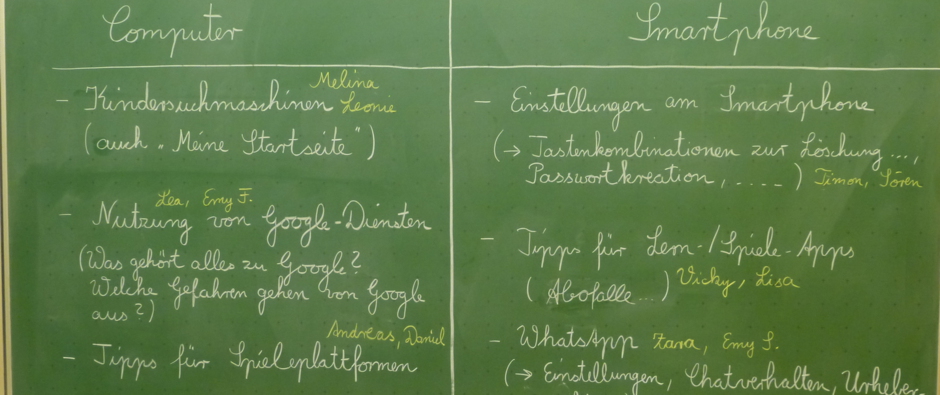 Computer
Melina
- Kindersuchmaschinen Leonie
(auch „Meine Startseite")
Lea, Emy F.
- Nutzung von Google-Diensten
(Was gehört alles zu Google?
Welche Gefahren gehen von Google
aus?)
Andreas, Daniel
- Tipps für Spieleplattformen
Smartphone
- Einstellungen am Smartphone
(→ Tastenkombinationen zur Löschung...,
Passwortkreation, .....) Timon, Sören
- Tipps für Lern-/Spiele-Apps
(Abofalle...) Vicky, Lisa
- WhatsApp Zara, Emy S.
(→ Einstellungen, Chatverhalten, Urheber-